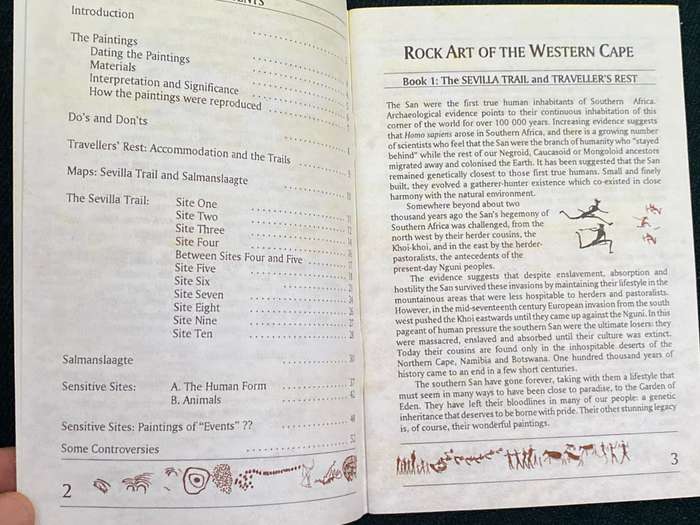 Introduction
The Paintings
Dating the Paintings
Materials
Interpretation and Significance
How the paintings were reproduced
Do's and Don'ts
Travellers' Rest: Accommodation and the Trails
Maps: Sevilla Trail and Salmanslaagte
The Sevilla Trail: Site One
Site Two
Site Three
Site Four
Between Sites Four and Five
Site Five
Site Six
Site Seven
Site Eight
Site Nine
Site Ten
Salmanslaagte
Sensitive Sites: A. The Human Form 37
B. Animals 42
Sensitive Sites: Paintings of "Events" ?? 48
Some Controversies 52
2
ROCK ART OF THE WESTERN CAPE
Book 1: The SEVILLA TRAIL and TRAVELLER'S REST
The San were the first true human inhabitants of Southern Africa.
Archaeological evidence points to their continuous inhabitation of this
corner of the world for over 100 000 years. Increasing evidence suggests
that Homo sapiens arose in Southern Africa, and there is a growing number
of scientists who feel that the San were the branch of humanity who "stayed
behind" while the rest of our Negroid, Caucasoid or Mongoloid ancestors
migrated away and colonised the Earth. It has been suggested that the San
remained genetically closest to those first true humans. Small and finely
built, they evolved a gatherer-hunter existence which co-existed in close
harmony with the natural environment.
Somewhere beyond about two
thousand years ago the San's hegemony of
Southern Africa was challenged, from the
north west by their herder cousins, the
Khoi-khoi, and in the east by the herder-
pastoralists, the antecedents of the
present-day Nguni peoples.
The evidence suggests that despite enslavement, absorption and
hostility the San survived these invasions by maintaining their lifestyle in the
mountainous areas that were less hospitable to herders and pastoralists.
However, in the mid-seventeenth century European invasion from the south
west pushed the Khoi eastwards until they came up against the Nguni. In this
pageant of human pressure the southern San were the ultimate losers: they
were massacred, enslaved and absorbed until their culture was extinct.
Today their cousins are found only in the inhospitable deserts of the
Northern Cape, Namibia and Botswana. One hundred thousand years of
history came to an end in a few short centuries.
The southern San have gone forever, taking with them a lifestyle that
must seem in many ways to have been close to paradise, to the Garden of
Eden. They have left their bloodlines in many of our people: a genetic
inheritance that deserves to be borne with pride. Their other stunning legacy
is, of course, their wonderful paintings.
3